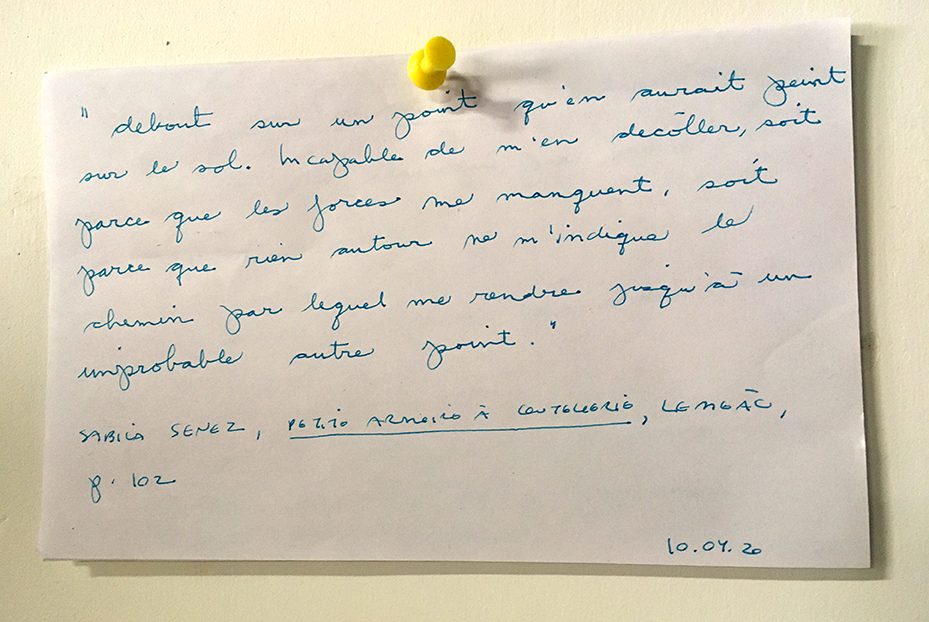 " debout sur un point qu'en aurait peint
sur le sol. Incapable de m'en decôller, soit
parce que les forces me manquent, soit
parce que rien autour ne m'indique le
chemin par lequel me rendre jusqu'à un
improbable autre point."
SENEZ, À, LEMEÀC,
p. 102
10.04.20